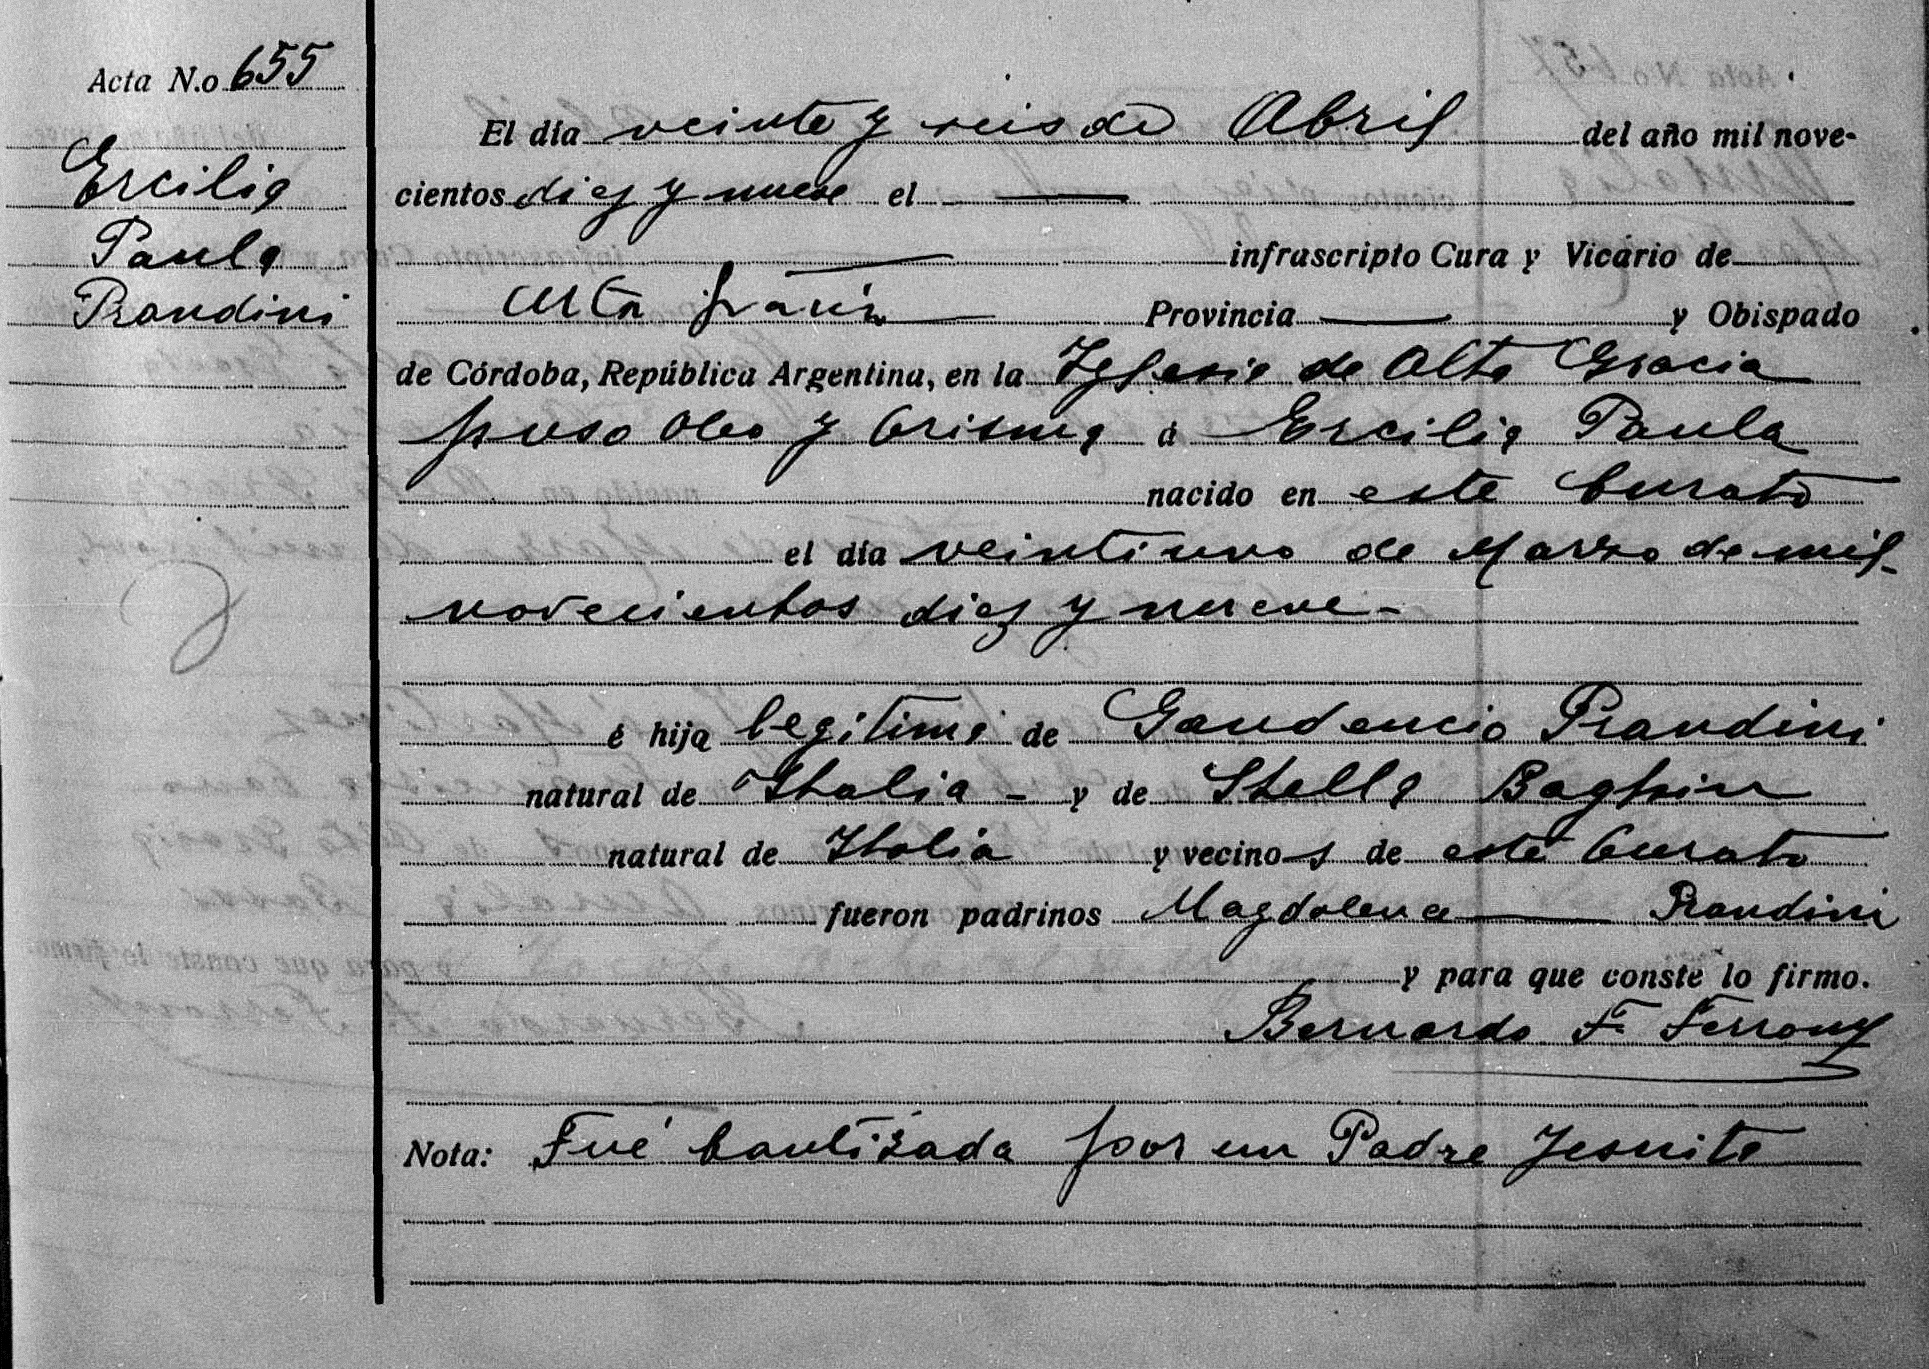 Acta N.o 655
Ercilia
Paula
Prandini
El día veinte y seis de Abril del año mil nove-
cientos diez y nueve el
infrascripto Cura y Vicario de
Alta Gracia Provincia y Obispado
de Córdoba, República Argentina, en la Iglesia de Alta Gracia
puso Oleo y Crisma á Ercilia Paula
nacido en este Curato
el día veintiuno de Marzo de mil
novecientos diez y nueve -
é hija legítima de Gaudencio Prandini
natural de Italia - y de Stella Baghin
natural de Italia y vecinos de este Curato
fueron padrinos Magdalena Prandini
y para que conste lo firmo.
Bernardo F.
Nota: Fué bautizada por un Padre Jesuita